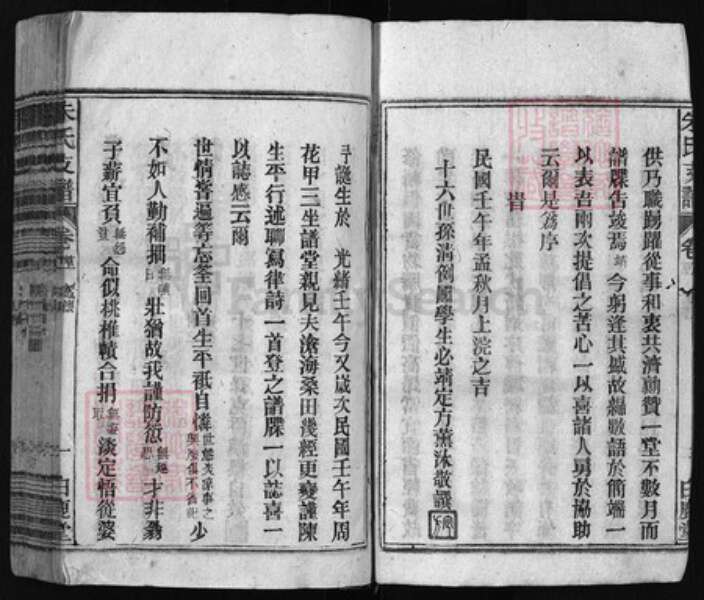 供乃職踴躍從事和衷共濟勷贊一堂不數月而
譜牒告竣焉靖今躬逢其盛故綴數語於簡端一
以表吾兩次提倡之苦心一以喜諸人勇於協助
云爾是為序
旹
民國壬午年孟秋月上浣之吉
十六世孫清例國學生必靖定方薰沐敬譔
予誕生於光緒壬午今又歲次民國壬午年周
花甲三坐譜堂親見夫滄海桑田幾經更變謹陳
生平行述聊寫律詩一首登之譜牒一以誌喜一
以誌感云爾
世情嘗遍等忘荃回首生平祇自 少
不如人勤補拙 壯猶故我謹防愆 才非
子薪宜負 命似桃椎幘合捐 淡定悟從婆
朱氏支譜
白鹿堂
FamilySearch